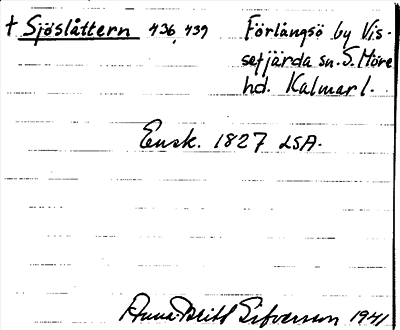 † Sjöslåttern 436, 439 Förlångsö by Vis-
sefjärda sn. S. Möre
hd. Kalmar l.
Ensk. 1827 LSA.
Anna-Britt Sifversson 1941